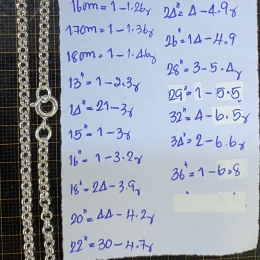 16cm = 1-1.26g
17cm = 1-1.36g
18cm = 1-1.46g
13" = 1-2.3g
14" = 21-3g
15" = 1-3g
16" = 1-3.2g
18" = 24-3.9g
20" = 44-4.2g
22" = 30-4.7g
24" = 4-4.9g
26" = 14-4.9
28" = 3-5.4g
29" = 1-5.5
32" = 4-6.5g
34" = 2-6.6g
36" = 1-6.8